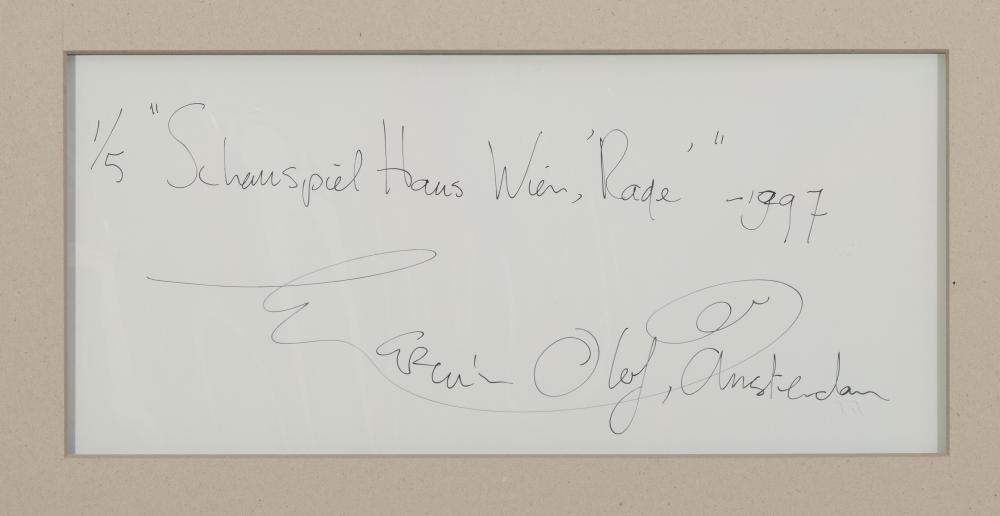 1/5 "Schauspiel Haus Wien, 'Rage' " - 1997
Erwin Olaf, Amsterdam